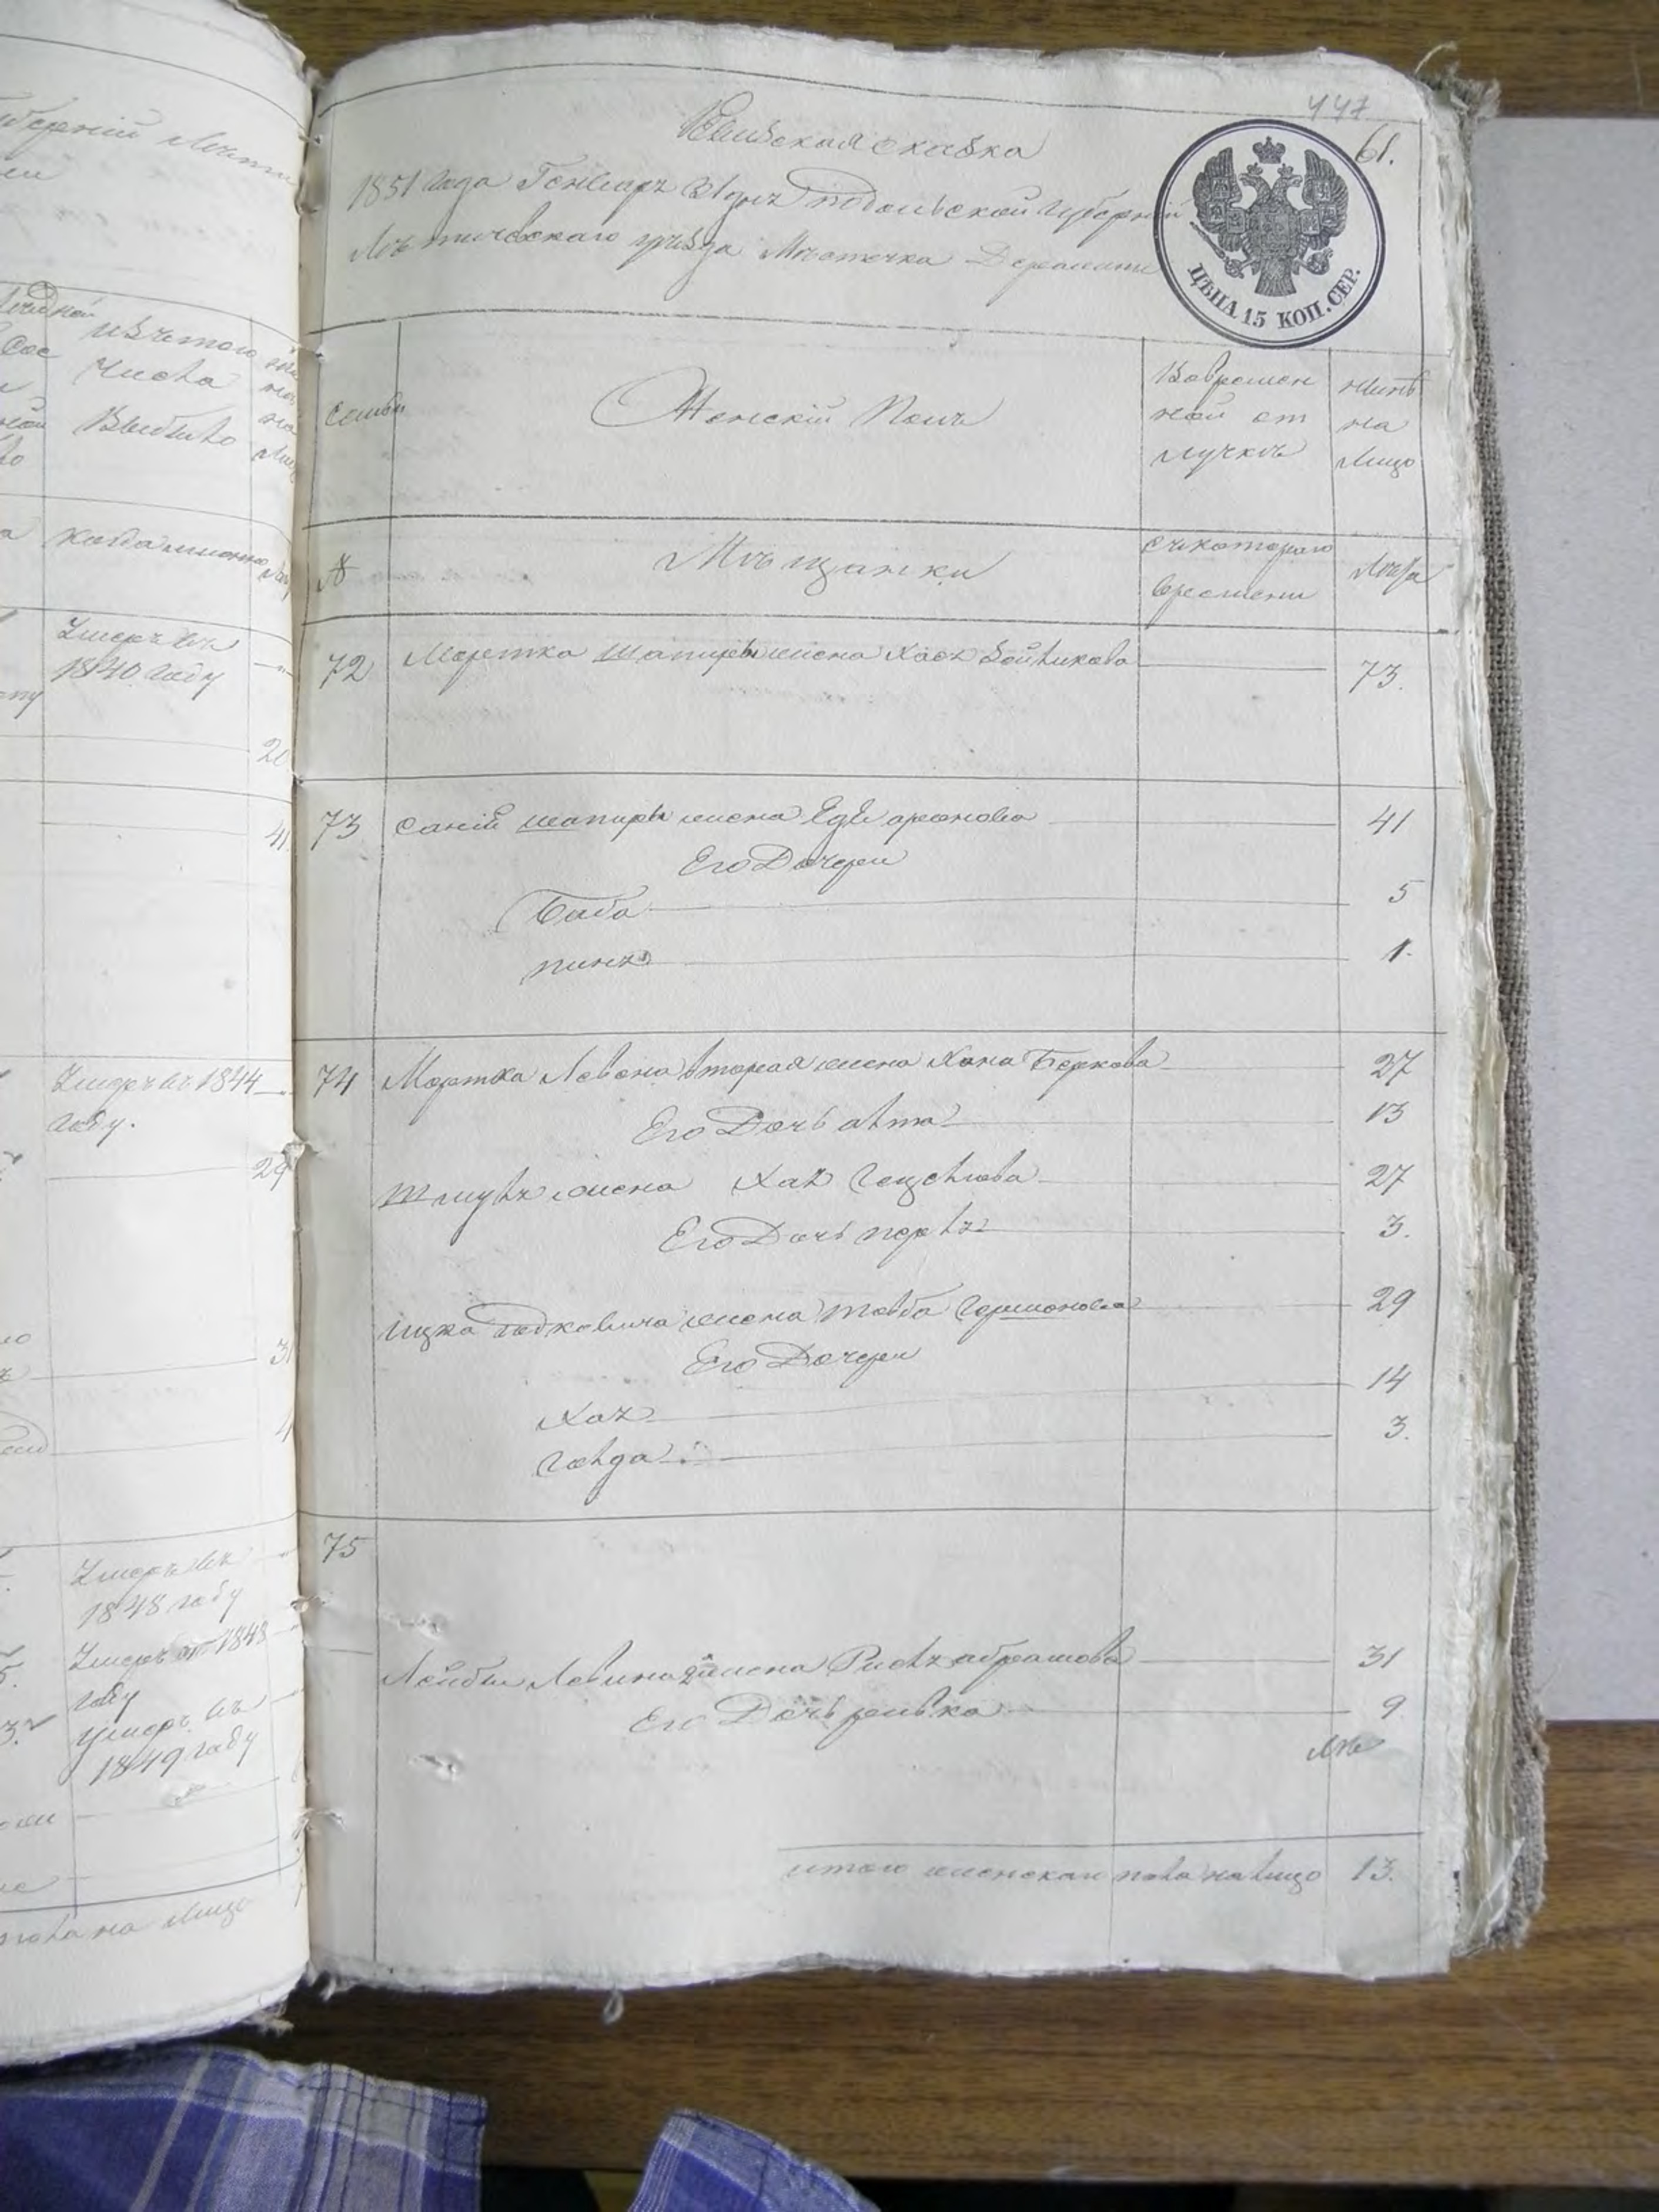 447
61.
Ревизская сказка
1851 года Генваря 31 дня Подольской Губерний
Летичевскаго уезда Местечка Деражни
ЦѢНА 15 КОП. СЕР.
Семьи
Женскій Полъ
Вовремен
ной от
лучкѣ
нинѣ
на
Лицо
№
Мѣщанки
Съкотораго
времени
Лѣта
72 Мортка Шапиры жена Хася Зойликова 73.
73 Саній шапиры жена Едя аронова 41
Его Дочери
Баба 5
1.
74 Мортка Левена вторая жена Хана Беркова 27
Его Дочь 13
Шмуля жена Хая 27
Его Дочь перля 3.
Ицка жена товба Гершонова 29
Его Дочери
Хая 14
Голда 3.
75
Лейбы Левина жена Рися абрамова 31
Его Дочь ривка 9
итого женскаго пола налицо 13.
изтого
числа
Выбыло
когда имянно
Умеръ въ
1840 году
20
41.
Умеръ въ 1844
году.
29
31
Умеръ въ
1848 году
Умеръ 1848
году
умеръ въ
1849 году
пола на лицо